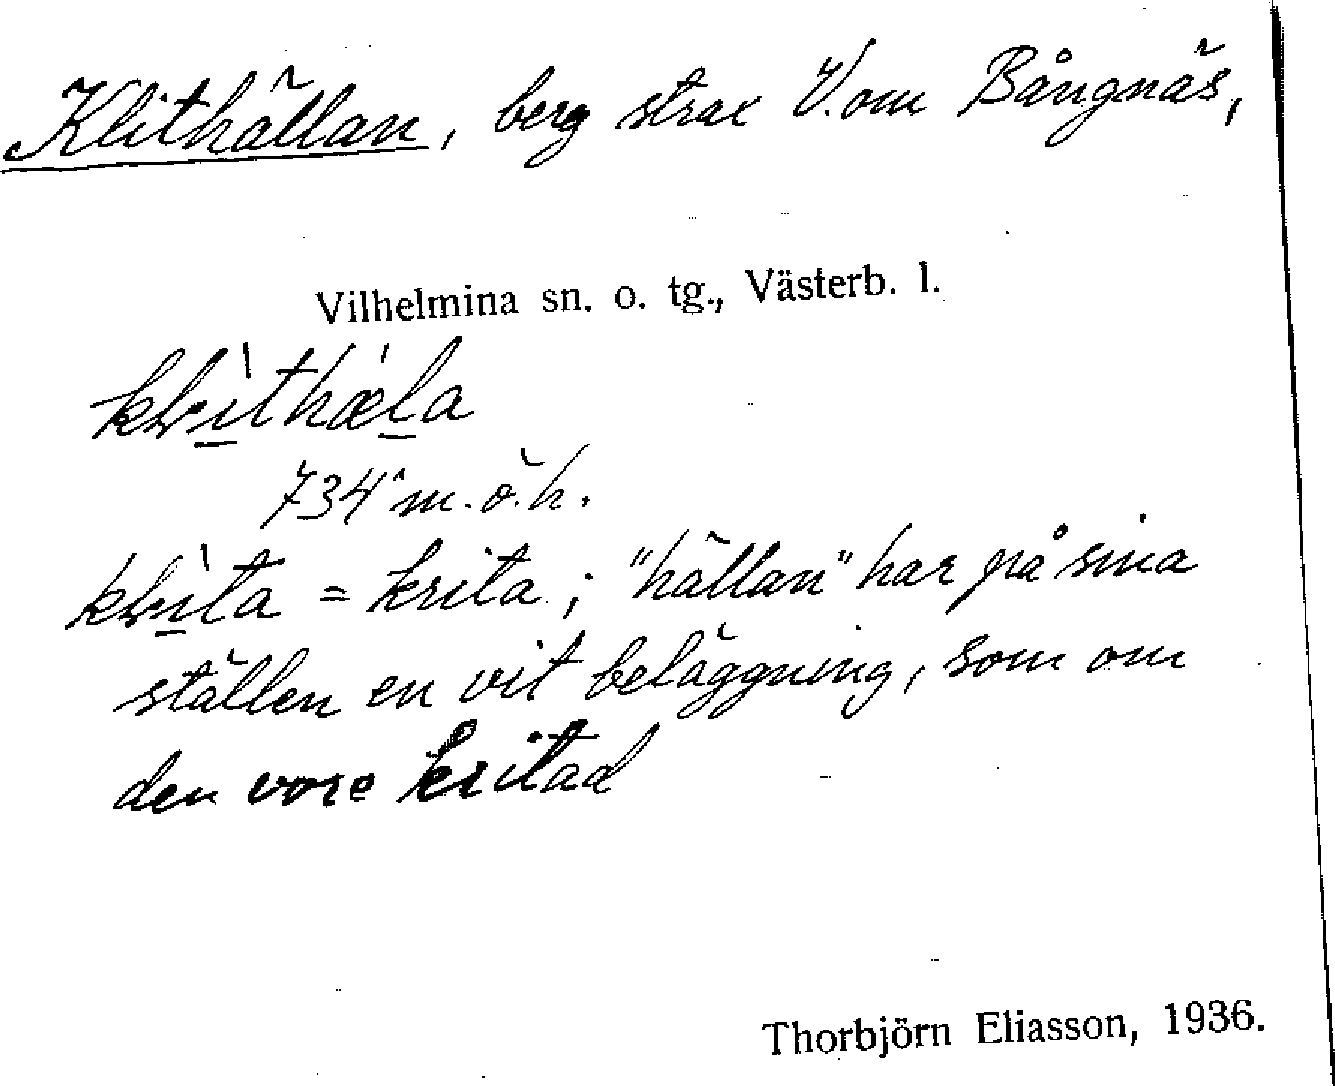 Klithällan, berg strax V. om Bångnäs,
Vilhelmina sn. o. tg., Västerb. l.
734 m. ö. h.
= krita; "hällan" har på sina
ställen en vit beläggning, som om
den vore kritad
Thorbjörn Eliasson, 1936.